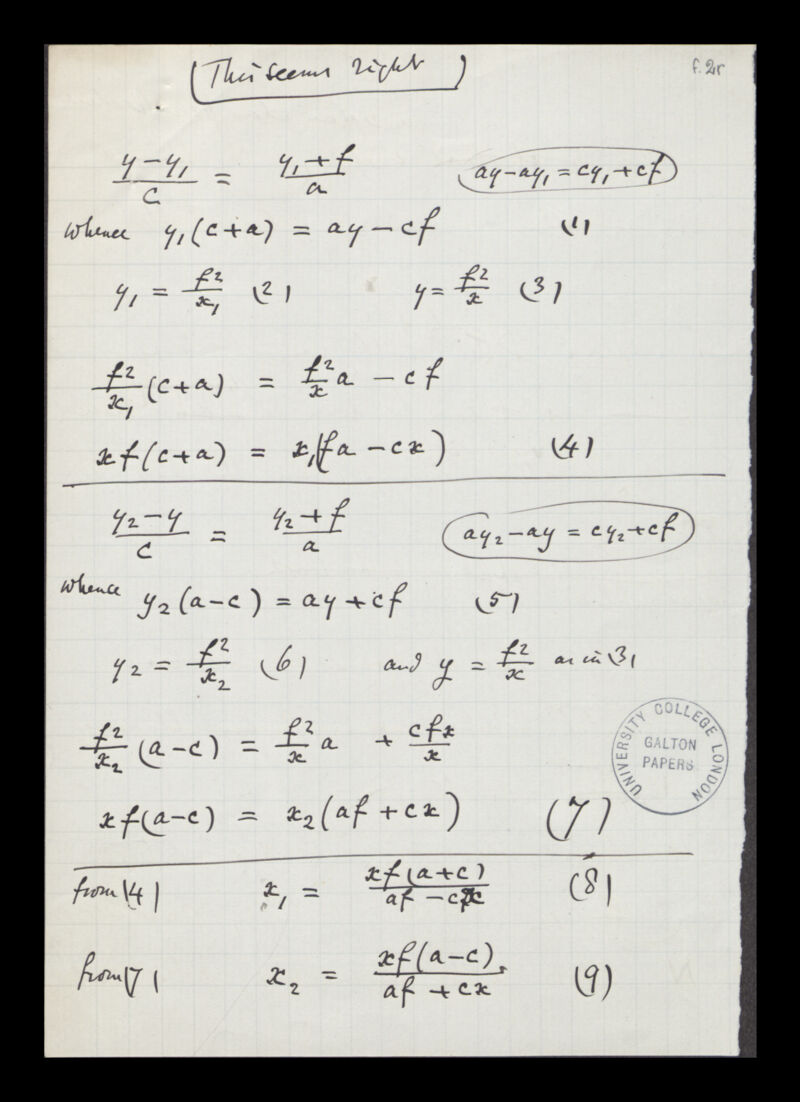 (This seems right)
f. 2r
(y − y₁)/c = (y₁ + f)/a    ay − ay₁ = cy₁ + cf
whence y₁(c+a) = ay − cf    (1)
y₁ = f²/x₁ (2)    y = f²/x (3)
f²/x₁ (c+a) = f²/x a − cf
xf(c+a) = x₁(fa − cx)    (4)
(y₂ − y)/c = (y₂ + f)/a    ay₂ − ay = cy₂ + cf
whence y₂(a−c) = ay + cf    (5)
y₂ = f²/x₂ (6)    and y = f²/x as in (3)
f²/x₂ (a−c) = f²/x a + cfx/x
xf(a−c) = x₂(af + cx)    (7)
from (4)    x₁ = xf(a+c)/(af − cx)    (8)
from (7)    x₂ = xf(a−c)/(af + cx)    (9)
UNIVERSITY COLLEGE LONDON
GALTON
PAPERS